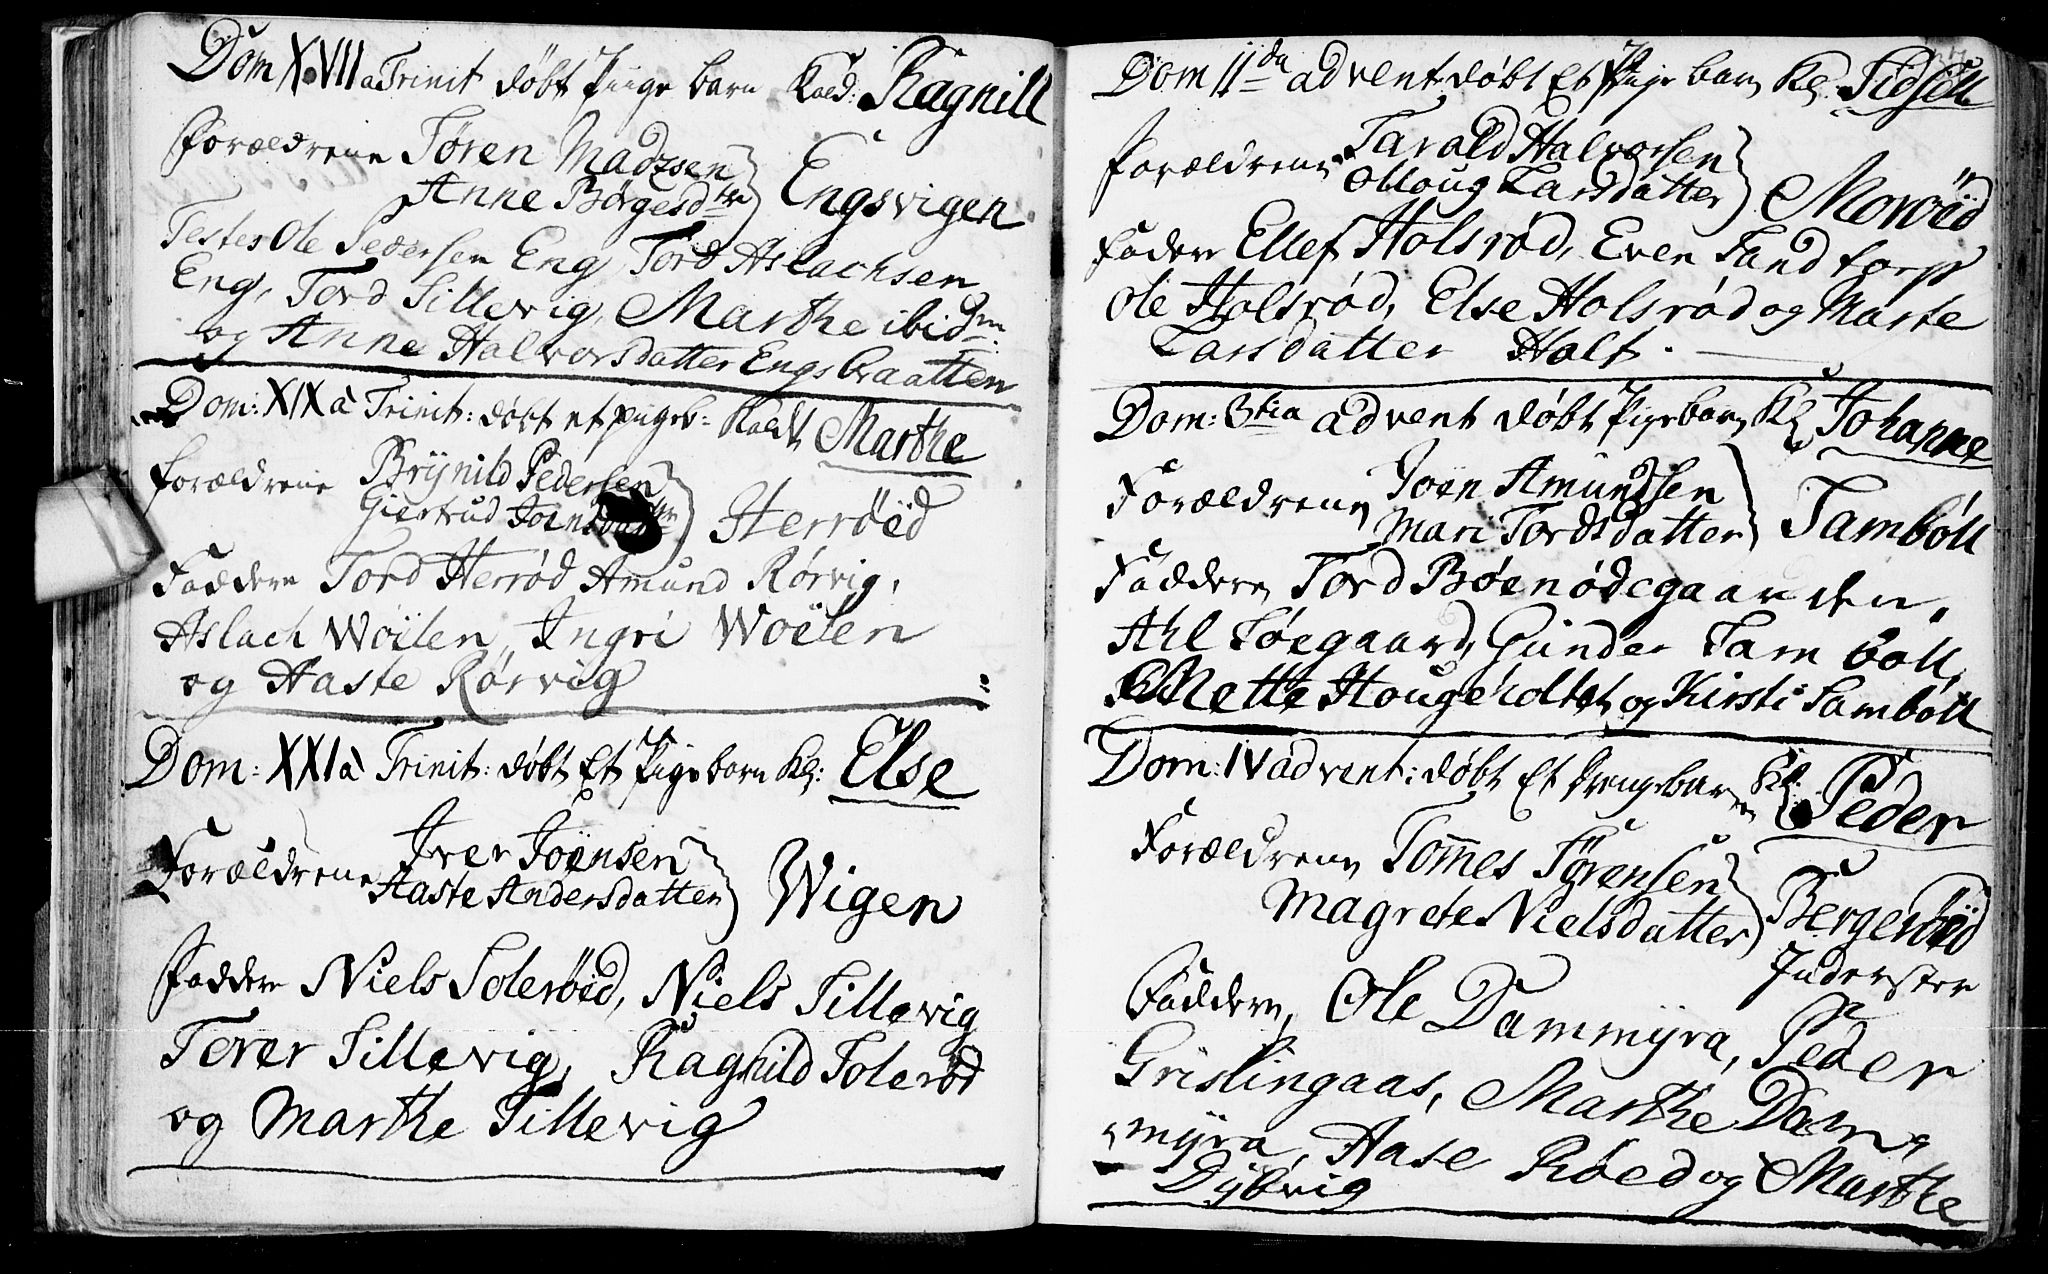 Dom XVII a Trinit døbt Piige barn Kald: Ragnill
Forældrene Søren Madzsen
Anne Børgesdtr Engsvigen
Testes Ole Pedersen Eng, Tord Aslachsen
Eng, Tord Sillevig, Marthe ibidm.
og Anne Halvorsdatter Engsbraatten
Dom: XIX à Trinit: døbt et pigeb: Kaldt Marthe
forældrene Brÿnild Pedersen
Giertrud Joensdatter Herröed
Faddere Tord Herrød Amund Rørvig,
Aslach Wöÿlen, Ingri Wöÿlen
og Aaste Rørvig
Dom: XXI à Trinit: døbt Et Pige barn Kl: Else
Forældrene Iver Joënsen
Aaste Andersdatter Wigen
Faddere Niels Solerøed, Niels Sillevig
Torer Sillevig, Ragnild Solerød
og Marthe Sillevig
Dom II da advent døbt Et Pige barn Kl. Sidsell
Forældrene Tarald Halvorsen
Olloug Larsdatter Moröed
Faddere Ellef Holsrød, Even Sandtorp
Ole Holsrød, Else Holsrød og Marte
Larsdatter Holt.
Dom: 3tia advent døbt Pige barn Kl Johanne
Forældrene Joen Amundsen
Mari Tordsdatter Samböll
Faddere Tord Bøenødegaarden,
Ahl Søegaard, Gunder Samböll,
Mette Hougeholtet og Kirsti Samböll
Dom: IV advent: døbt Et drengebarn Kl. Peder
Forældrene Tommes Sørensen
Magrete Nielsdatter Bergeröed
Inderster
Faddere, Ole Dammÿra, Peder
Grislingaas, Marthe Dam,
mÿra, Aase Røed og Marthe
Dÿbvig